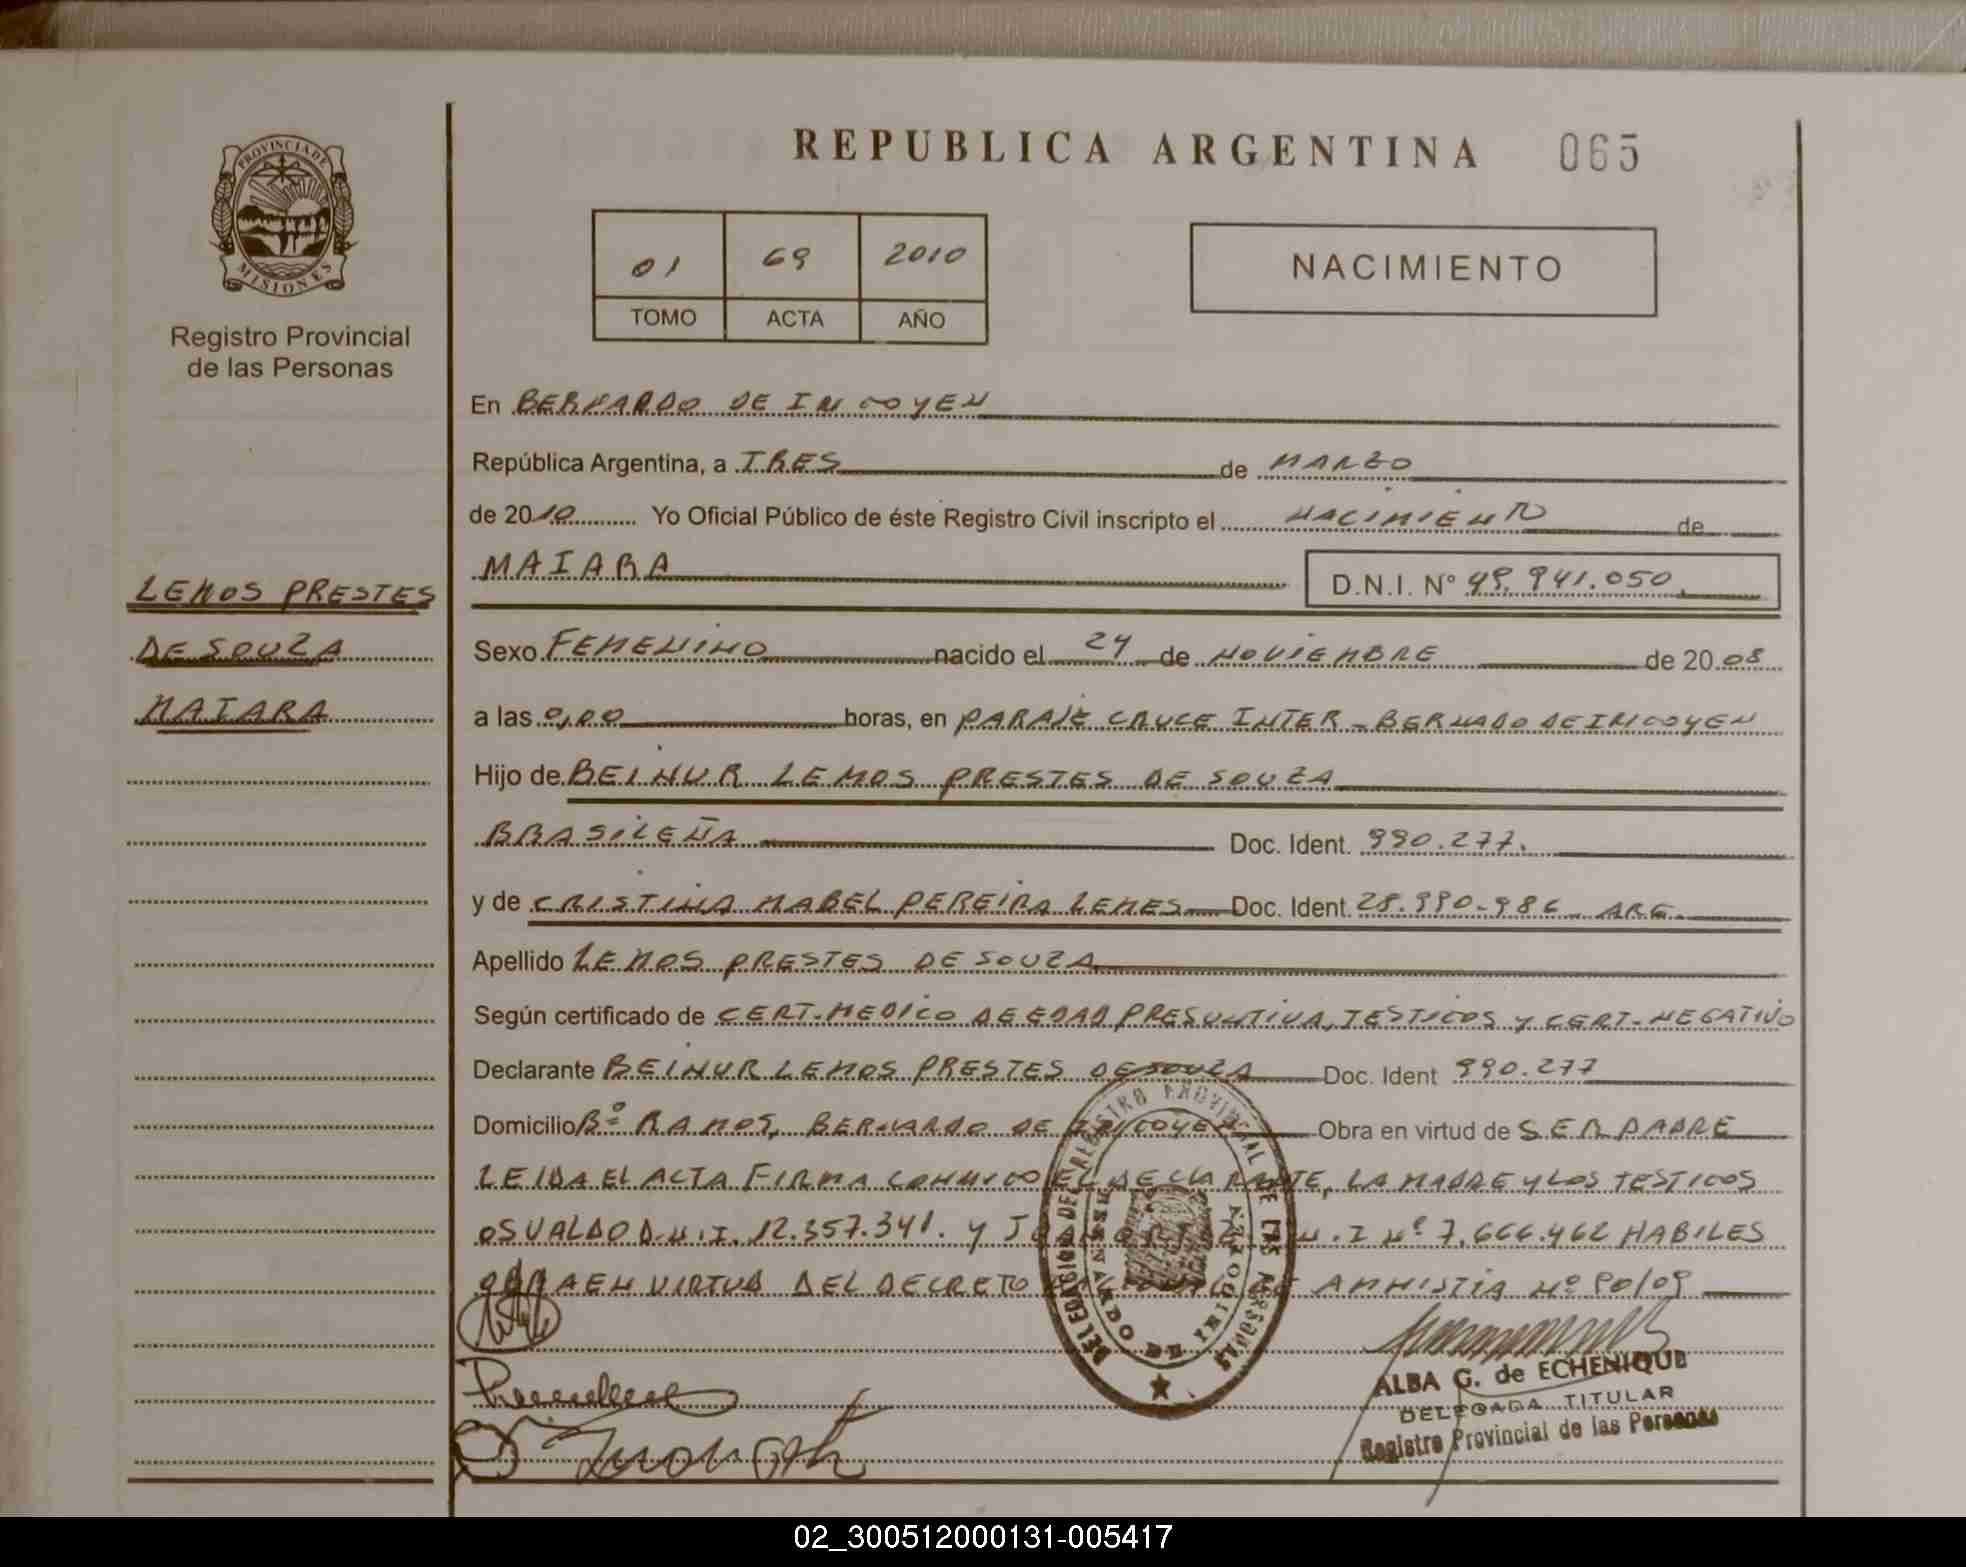 REPUBLICA ARGENTINA 065
PROVINCIA DE
MISIONES
Registro Provincial
de las Personas
01 69 2010
TOMO ACTA AÑO
NACIMIENTO
En BERNARDO DE IRIGOYEN
República Argentina, a TRES de MARZO
de 2010 Yo Oficial Público de éste Registro Civil inscripto el NACIMIENTO de
MAIARA D.N.I. Nº 49.941.050
LEMOS PRESTES
DE SOUZA
MAIARA
Sexo FEMENINO nacido el 24 de NOVIEMBRE de 2008
a las 0,00 horas, en PARAJE CRUCE INTER - BERNADO DE IRIGOYEN
Hijo de BEINUR LEMOS PRESTES DE SOUZA
BRASILEÑA Doc. Ident. 990.277.
y de CRISTINA MABEL PEREIRA LEMES Doc. Ident. 28.990.986 ARG.
Apellido LEMOS PRESTES DE SOUZA
Según certificado de CERT. MEDICO DE EDAD PRESUNTIVA, TESTIGOS Y CERT. NEGATIVO
Declarante BEINUR LEMOS PRESTES DE SOUZA Doc. Ident 990.277
Domicilio Bº RAMOS, BERNARDO DE IRIGOYEN Obra en virtud de SER PADRE
LEIDA EL ACTA FIRMA CONMIGO EL DECLARANTE, LA MADRE Y LOS TESTIGOS
OSVALDO D.N.I. 12.357.341. Y N.I Nº 7.666.462 HABILES
EN VIRTUD DEL DECRETO AMNISTIA Nº 90/09
DELEGACION DEL REGISTRO PROVINCIAL DE LAS PERSONAS
ALBA G. de ECHENIQUE
DELEGADA TITULAR
Registro Provincial de las Personas
02_300512000131-005417